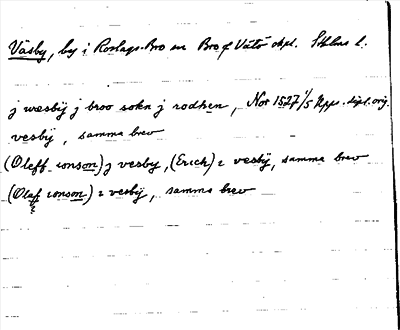 Väsby, by i Roslags-Bro sn Bro o Vätö skpl. Sthlms l.
j wæsbÿ j broo sokn j rodhen, Nor 1527 1/5 Upps. dipl. orig.
vesbÿ, samma brev
(Oleff ionson) j vesby, (Erich) i vesbÿ, samma brev
(Olaff ionson) i vesbÿ, samma brev